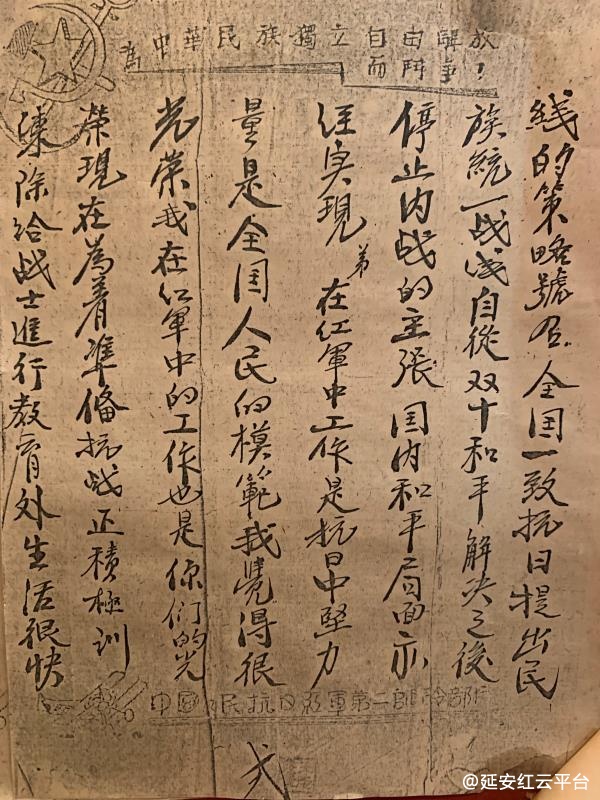 為中華民族獨立自由解放
而鬥爭！
綫的策略號召全国一致抗日提出民
族統一战线自從双十和平解决之後
停止内战的主張国内和平局面亦
经实現弟在红軍中工作是抗日中堅力
量是全国人民的模範我覺得很
光荣我在红軍中的工作也是你们的光
荣現在為着準備抗战正積極训
練除给战士進行教育外生活很快
中國人民抗日红軍第二
弍
@延安红云平台